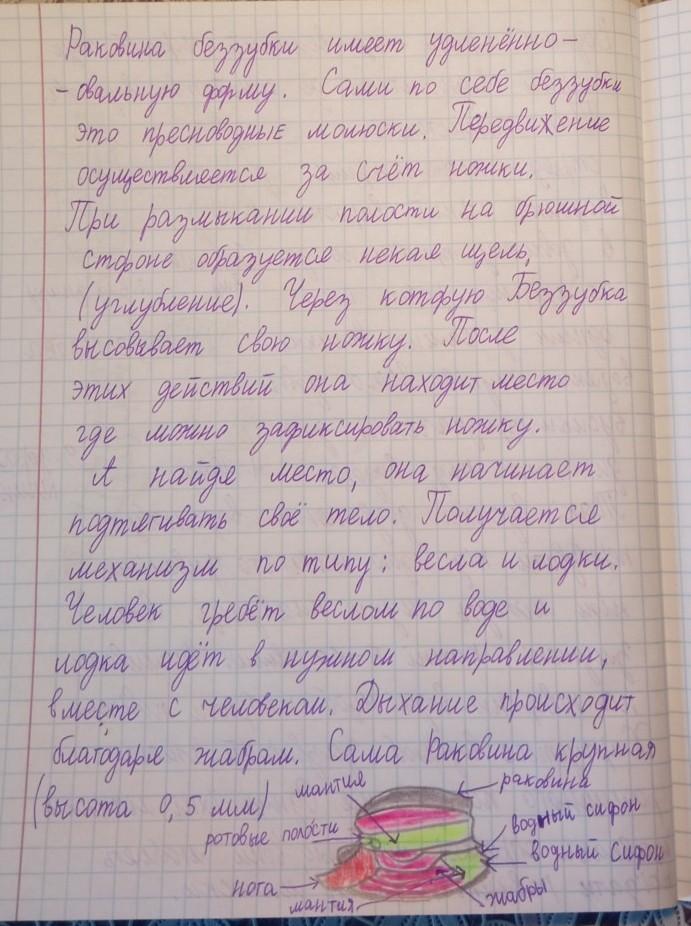 Раковина беззубки имеет удленённо-
-овальную форму. Сами по себе беззубки
это пресноводные молюски. Передвижение
осуществляется за счёт ножки.
При размыкании полости на брюшной
стороне образуется некая щель,
(углубление). Через которую Беззубка
высовывает свою ножку. После
этих действий она находит место
где можно зафиксировать ножку.
А найдя место, она начинает
подтягивать своё тело. Получается
механизм по типу: весла и лодки.
Человек гребёт веслом по воде и
лодка идёт в нужном направлении,
вместе с человеком. Дыхание происходит
благодаря жабрам. Сама Раковина крупная
(высота 0,5 мм)
мантия
раковина
водный сифон
ротовые полости
водный сифон
нога
мантия
жабры